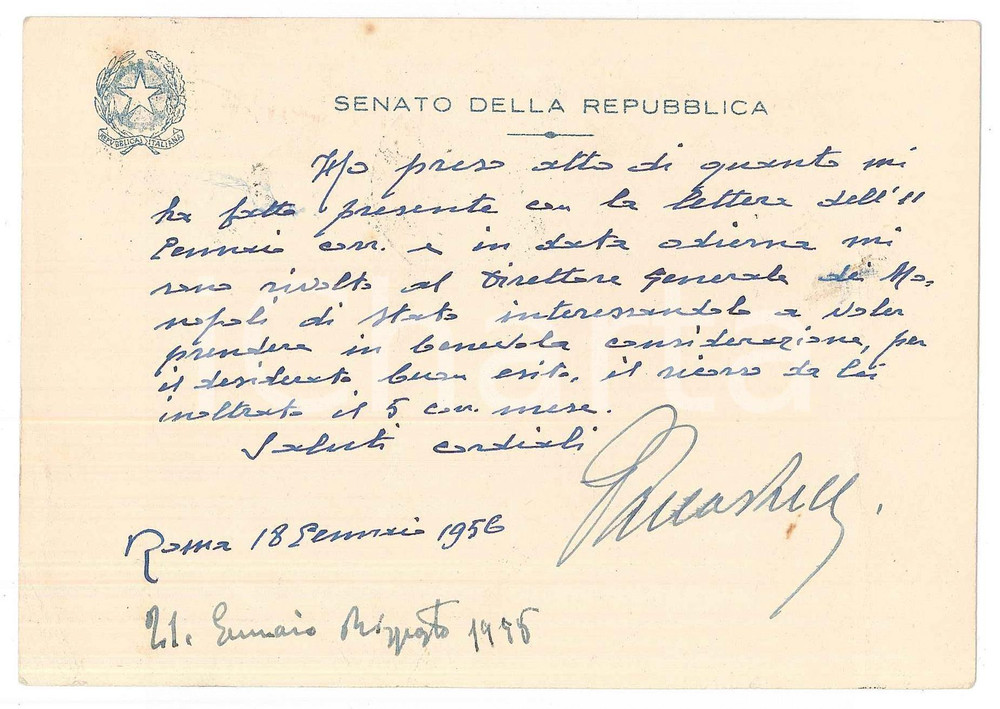 REPVBBLICA ITALIANA
SENATO DELLA REPUBBLICA
Ho preso atto di quanto mi
ha fatto presente con la lettera dell'11
Gennaio corr. e in data odierna mi
sono rivolto al Direttore Generale dei Mo-
nopoli di Stato interessandolo a voler
prendere in benevola considerazione, per
il desiderato buon esito, il ricorso da Lei
inoltrato il 5 corr. mese.
Saluti cordiali
Roma 18 Gennaio 1956
21. Gennaio Risposto 1956